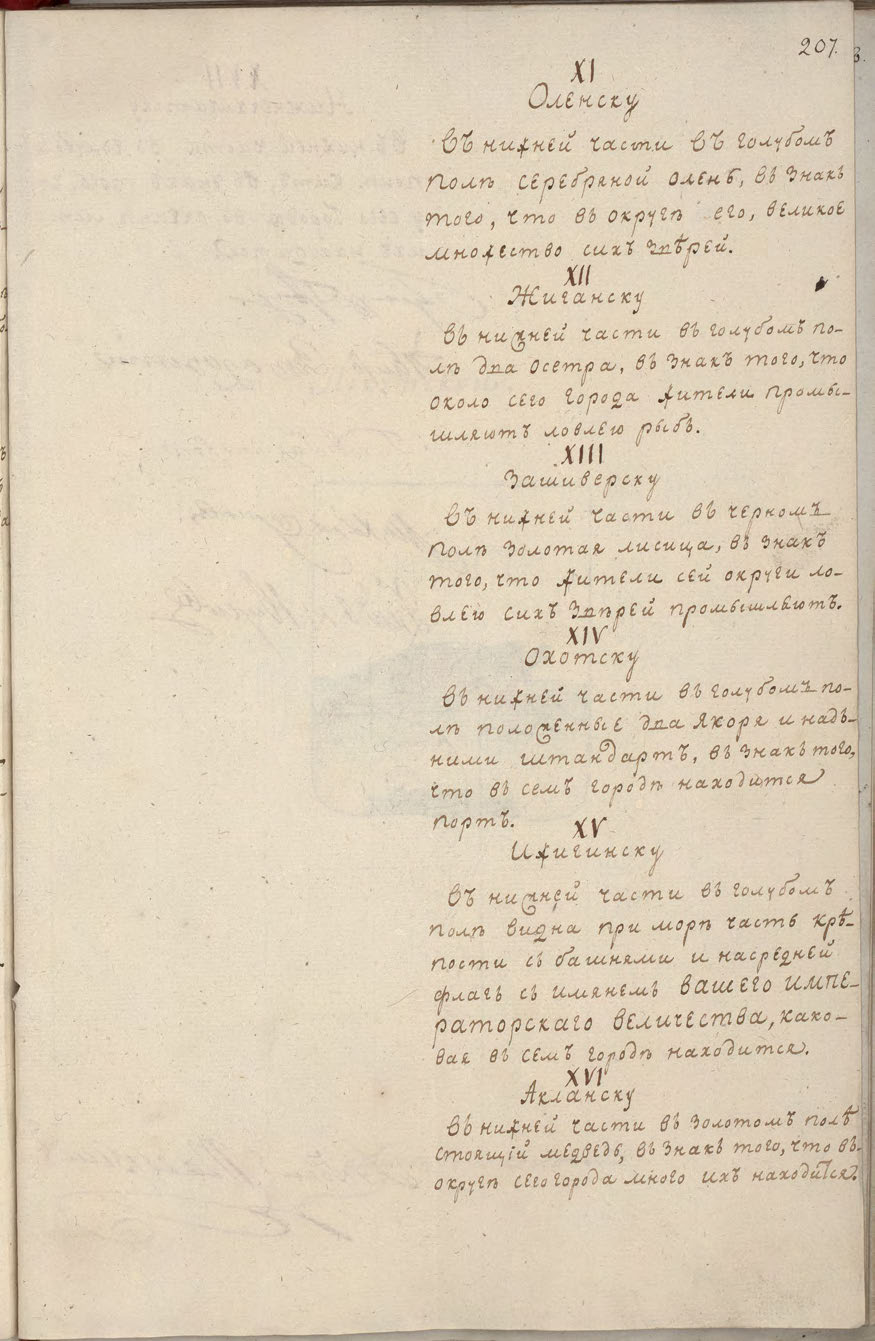 207.
XI
Оленску
Въ нижней части въ голубомъ
полѣ серебряной олень, въ знакъ
того, что въ округѣ его, великое
множество сихъ звѣрей.
XII
Жиганску
Въ нижней части въ голубомъ по-
лѣ два осетра, въ знакъ того, что
около сего города жители промы-
шляютъ ловлею рыбъ.
XIII
Зашиверску
Въ нижней части въ черномъ
полѣ золотая лисица, въ знакъ
того, что жители сей округи ло-
влею сихъ звѣрей промышляютъ.
XIV
Охотску
Въ нижней части въ голубомъ по-
лѣ положенные два якоря и надъ-
ними штандартъ, въ знакъ того,
что въ семъ городѣ находится
портъ.
XV
Ижигинску
Въ нижней части въ голубомъ
полѣ видна при морѣ часть крѣ-
пости съ башнями и насредней
флагъ съ имянемъ вашего импе-
раторскаго величества, како-
вая въ семъ городѣ находится.
XVI
Акланску
Въ нижней части въ золотомъ полѣ
стоящій медведь, въ знакъ того, что въ-
округѣ сего города много ихъ находится.